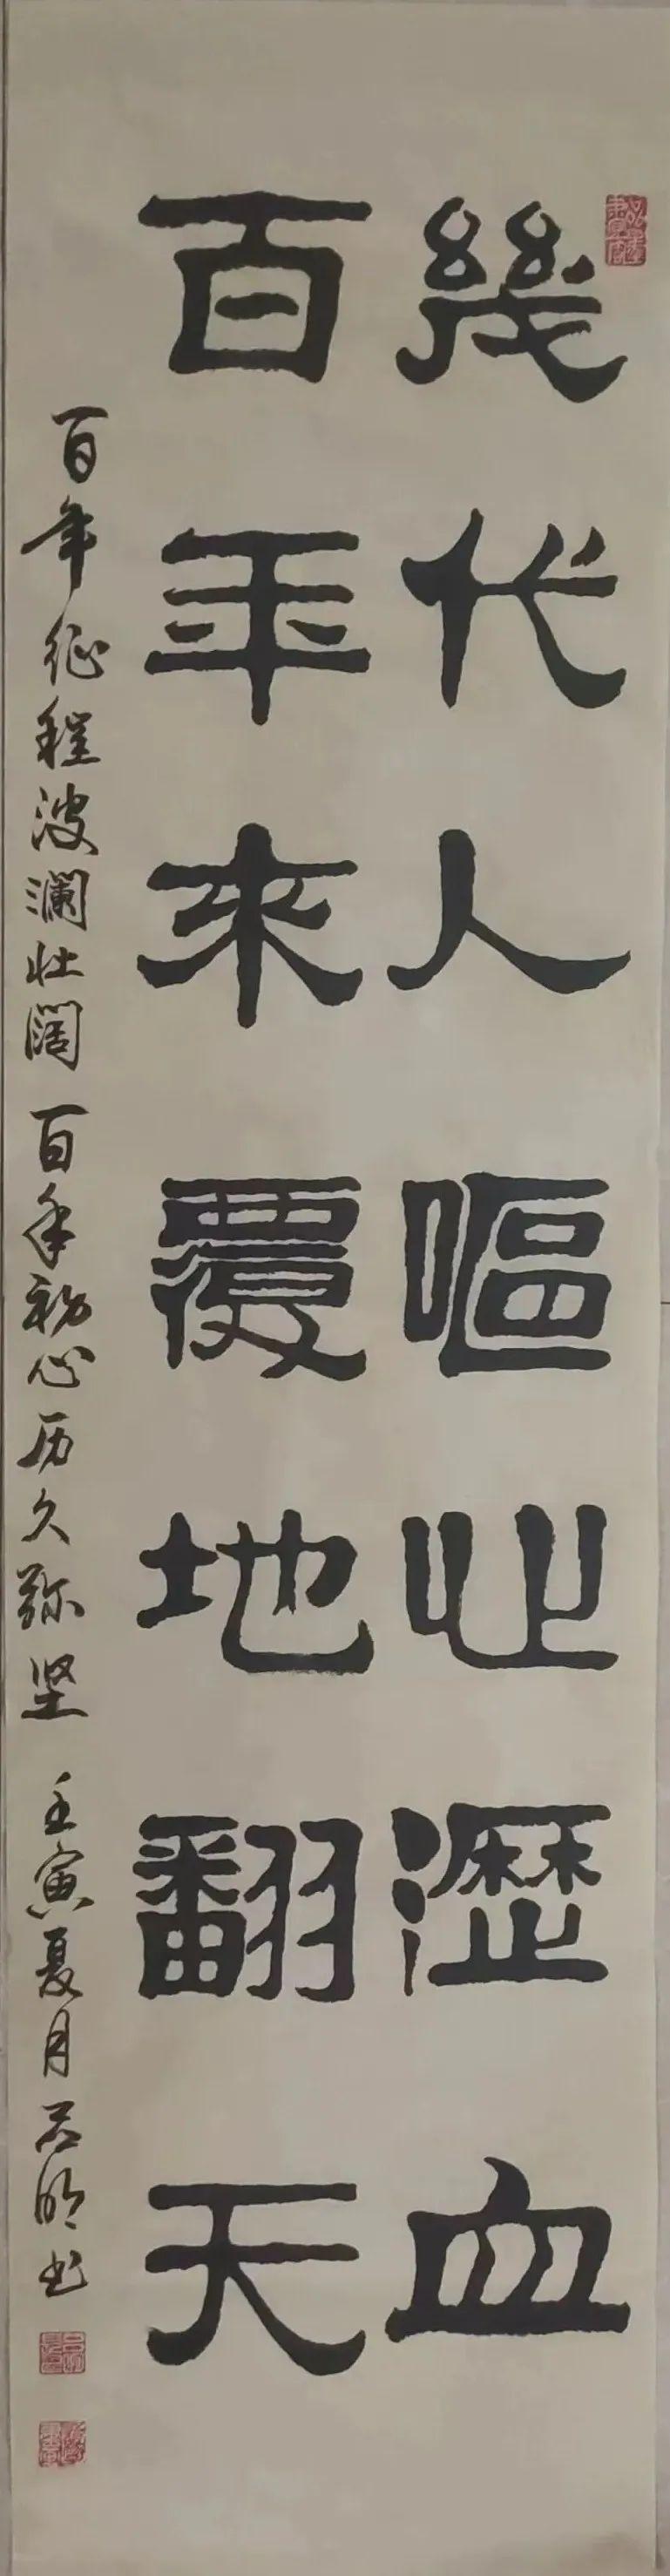 幾代人嘔心瀝血
百年來覆地翻天
百年征程波澜壮阔 百年初心历久弥坚 壬寅夏月吕明书